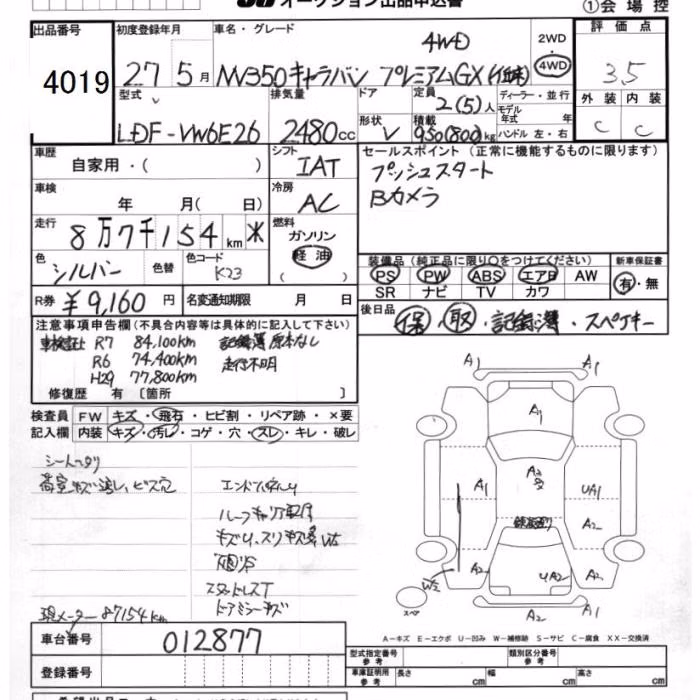 オークション出品申込書
①会場控
出品番号
4019
初度登録年月
27 5月
車名・グレード
4WD
NV350キャラバン プレミアムGX
2WD
・
4WD
評価点
3.5
外装 内装
C C
型式
LDF-VW6E26
排気量
2480cc
ドア
形状
V
定員
2(5)人
積載
950(800)kg
ディーラー・並行
モデル
年式 年
ハンドル 左・右
車歴
自家用・( )
シフト
IAT
車検
年 月( 日)
冷房
AC
走行
8万7千154km
燃料
ガソリン
軽油
( )
色
シルバー
色替
色コード
K23
R券 ¥9,160円
名変通知期限 月 日
セールスポイント(正常に機能するものに限ります)
プッシュスタート
Bカメラ
装備品(純正品に限り○をつけてください)
PS PW ABS エアB AW
SR ナビ TV カワ
新車保証書
有・無
後日品
保・取・記録簿・スペアキー
注意事項申告欄(不具合内容等は具体的に記入して下さい)
R7 84,100km 記録簿原本なし
R6 74,400km 走行不明
H29 77,800km
修復歴 有〔箇所 〕
検査員
記入欄
FW キズ・飛石・ヒビ割・リペア跡・×要
内装 キズ・汚レ・コゲ・穴・スレ・キレ・破レ
ルーフキャリア
スタットレスT
現メーター87154km
車台番号 012877
登録番号
A1 A1
A1
A1 A2 UA1
A2
W2 A2 UA2 A2
A2 A1
スペア
A-キズ E-エクボ U-凹み W-補修跡 S-サビ C-腐食 XX-交換済
型式指定番号
参考
類別区分番号
参考
車庫証明用
参考
長さ cm 幅 cm 高さ cm